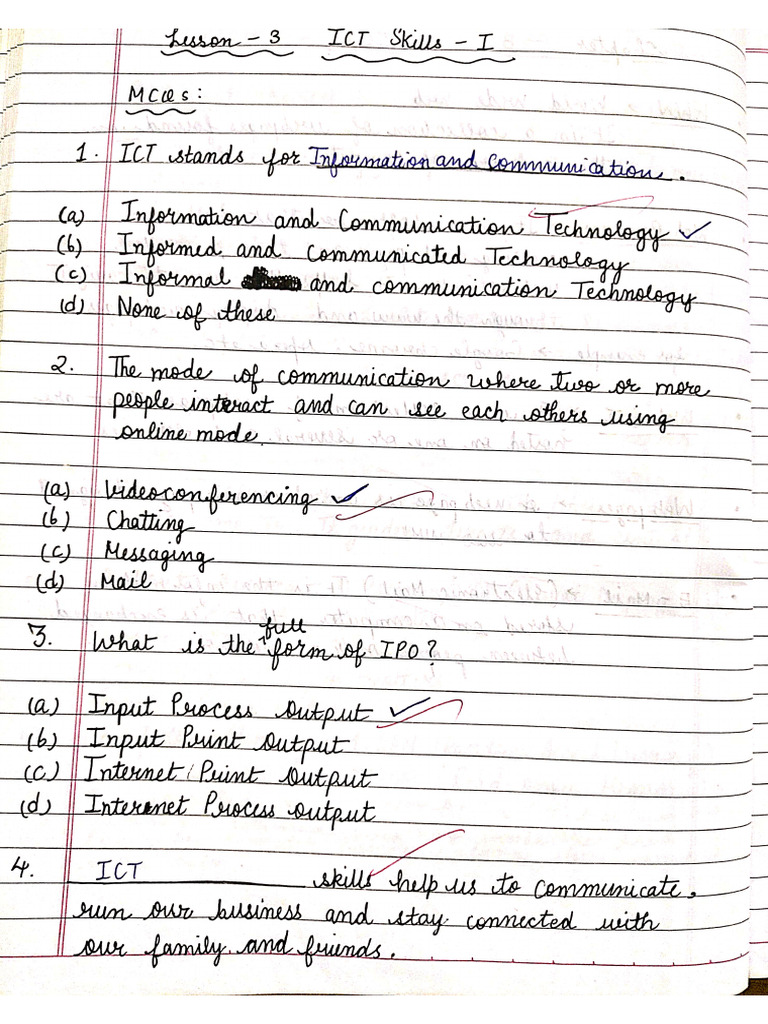 Lesson - 3 ICT Skills - I
MCQs:
1. ICT stands for Information and Communication.
(a) Information and Communication Technology ✓
(b) Informed and Communicated Technology
(c) Informal and communication Technology
(d) None of these
2. The mode of communication where two or more
people interact and can see each others using
online mode.
(a) Videoconferencing ✓
(b) Chatting
(c) Messaging
(d) Mail
3. What is the full form of IPO?
(a) Input Process Output ✓
(b) Input Print Output
(c) Internet Print Output
(d) Internet Process output
4. ICT skills help us to communicate,
run our business and stay connected with
our family and friends.